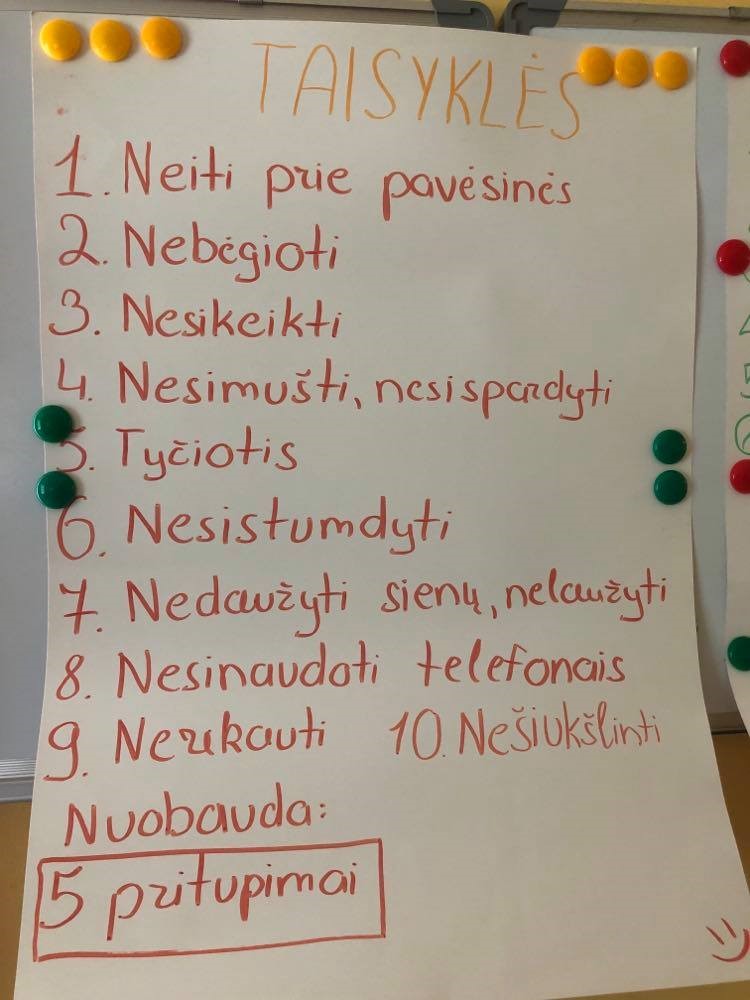 TAISYKLĖS
1. Neiti prie pavėsinės
2. Nebėgioti
3. Nesikeikti
4. Nesimušti, nesispardyti
5. Tyčiotis
6. Nesistumdyti
7. Nedaužyti sienų, nelaužyti
8. Nesinaudoti telefonais
9. Nerėkauti 10. Nešiukšlinti
Nuobauda:
5 pritupimai